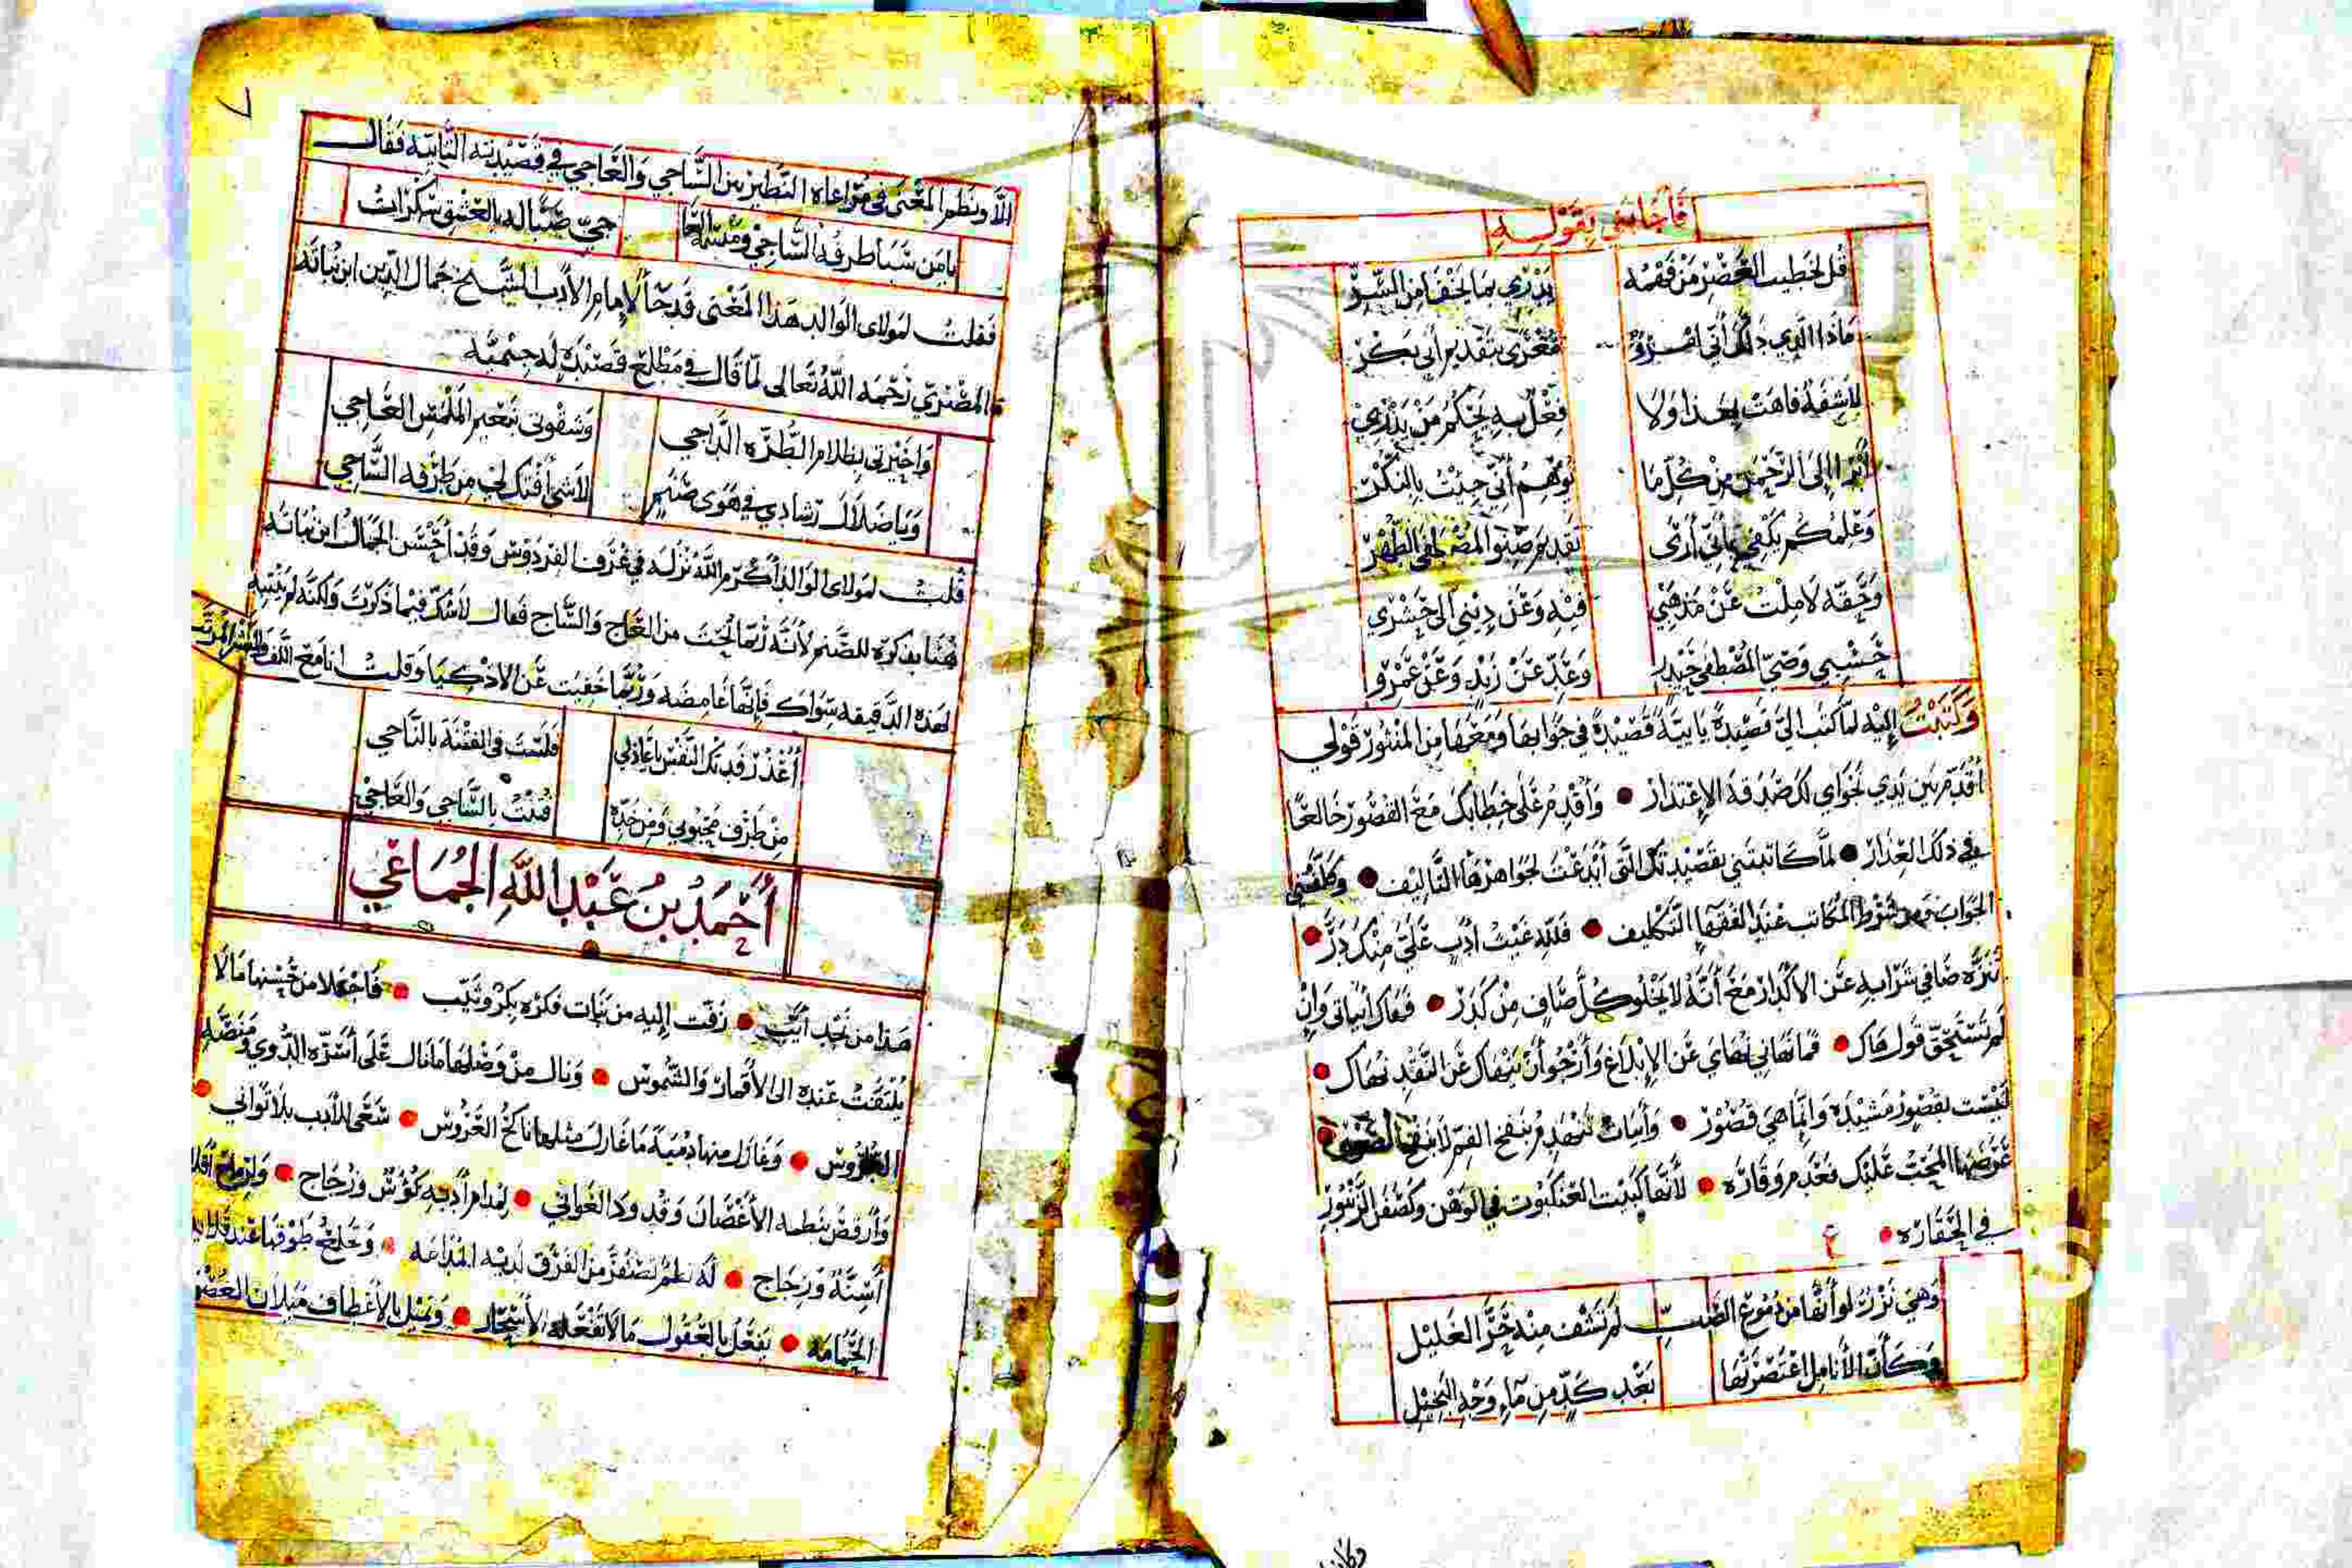 فأجابني بقوله
قل لخطيب العصر من فقمه يدري بما يخفا من السر
ماذا الذي ذلك أني امرؤ مغرى بتقديم أبي بكر
لا شفة فاهت بهذا ولا فعل به يحكم من يدري
أبرا إلى الرحمن من كل ما توهم أني جئت بالنكر
وعلمكم يكفي بأني أرى تقديم صنو المصطفى الطهر
وحقه لا ملت عن مذهبي فيه وعن ديني الى حشري
حسبي وصي المصطفى حيدر وعد عن زيد وعن عمرو
وكتبت إليه لما كتب الي قصيدة يايية قصيدة في جوابها ومعها من المنثور قولي
أقدم بين يدي نجواي لك صدقة الإعتذار وأقدم على خطابك مع القصور خالعا
في ذلك العذار لما كاتبتني بقصيدتك التي أبدعت لجواهرها التاليف وكلفتني
الجواب وهو شرط المكاتب عند الفقها التكليف فلله غيث أدب علي منك در
تنزه صافي شرابه عن الأكدار مع أنه لا يخلو كل صاف من كدر فهاك أبياتي وإن
لم تستحق قول هاك فما نهاني نهاي عن الإبلاغ وأرجو أن ينهاك عن النقد نهاك
ليست بقصور مشيدة وانما هي قصور وأبيات تنهدم بنفخ الفم لا بنفخ الصور
عرضها المحب عليك فعدم وقاره لأنها كبيت العنكبوت في الوهن وكصفر الزنبور
في الحقاره
وهي نزر لو أنها من دموع الصب لم تشف منه حر الغليل
وكأن الأنامل اعتصرتها بعد كد من ماء وجه البخيل
٧
الا ونظم المعنى في مراعاة النظير بين الساجي والعاجي في قصيدته التايية فقال
يامن سبا طرفه الساجي ومبسمه العا جي صبا له بالعشق سكرات
فقلت لمولاى الوالد هذا المعنى قد جا لإمام الأدب الشيخ جمال الدين ابن نباتة
المصري رحمه الله تعالى لما قال في مطلع قصيدة له جيمية
واحيرتي بظلام الطرة الداجي وشقوتي بنعيم الملمس العاجي
ويا ضلال رشادي في هوى صنم لا شى أفتك لي من طرفه الساجي
قلت لمولاى الوالد أكرم الله نزله في غرف الفردوس وقد أحسن الجمال ابن نباته
هنا بذكره للصنم لأنه ربما نحت من العاج والساج فقال لا شك فيما ذكرت ولكنه لم ينتبه
لهذه الدقيقة سواك فإنها غامضة وربما خفيت عن الاذكيا وقلت انا مع اللف والنشر المرتب
أعذر فدتك النفس يا عاذلي فلست في الفتنة بالناجي
من طرف محبوبي ومن خده فتنت بالساجي والعاجي
أحمد بن عبد الله الجماعي
هذا من نجد أنيب زفت إليه من بنات فكره بكر وثيب فاجتلا من حسنها مالا
يلتفت عنده الى الأقمار والشموس ونال من وصلها ما نال على أسرة الدوي ومنصة
الطروس وغازل منها دمية ما غازل مثلها ناكح العروس سعى للأدب بلا تواني
وأرقص بنظمه الأغصان وقدود الغواني لمدام أدبه كؤس وزجاج ولرماح
أسنة وزجاج له نظم تصفر من الفرق لديه المدامه وتخلع طوقها عند
الحمامه يفعل بالعقول مالا تفعله الأسحار وتميل بالأعطاف ميلان